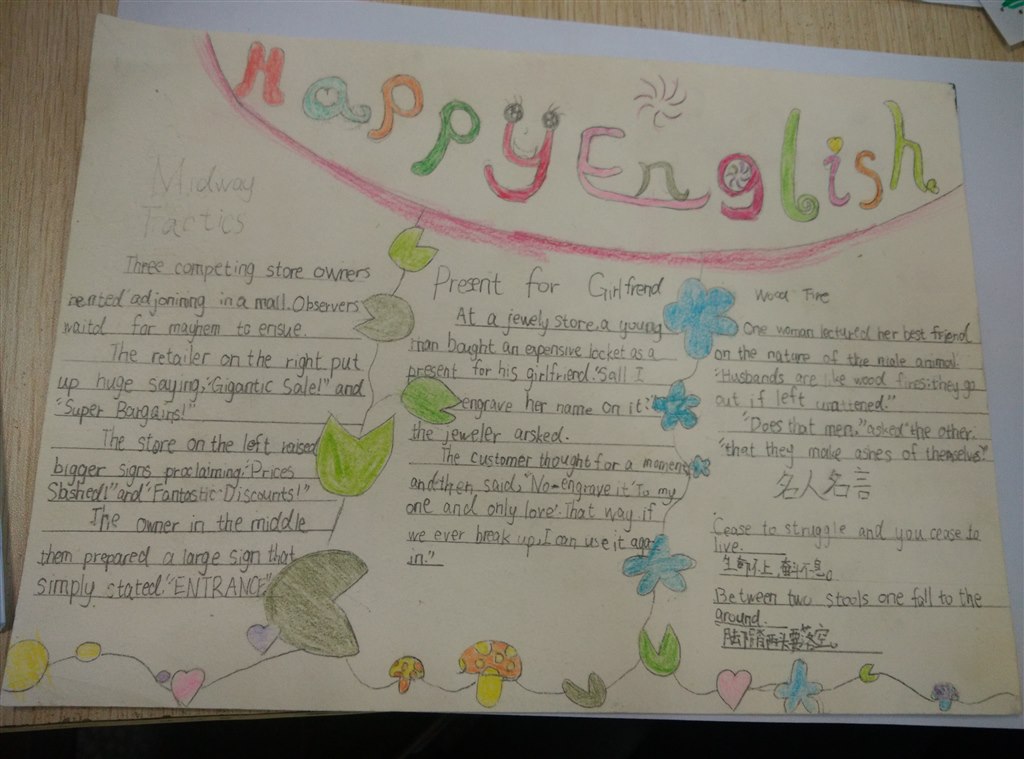 Happy English
Midway
Tactics
Three competing store owners
rented adjonining in a mall. Observers
waitd for mayhem to ensue.
The retailer on the right put
up huge saying, "Gigantic Sale!" and
"Super Bargairs!"
The store on the left raised
bigger signs proclaiming "Prices
Slashed!" and "Fantastic Discounts!"
The owner in the middle
them prepared a large sign that
simply stated. "ENTRANCE"
Present for Girlfrend
At a jewely store, a young
man bought an expensive locket as a
present for his girlfriend. "Sall I
engrave her name on it?"
the jeweler arsked.
The customer thought for a moment
and then said, "No-engrave it 'To my
one and only love'. That way if
we ever break up, I can use it aga-
in."
Wood Fire
One woman lectured her best friend
on the nature of the male animal.
"Husbands are like wood fires: they go
out if left unattened."
"Does that men," asked the other.
"that they make ashes of themselves?"
名人名言
Cease to struggle and you cease to
live.
生命不止,奋斗不息。
Between two stools one fall to the
around.
脚踏两头要落空。